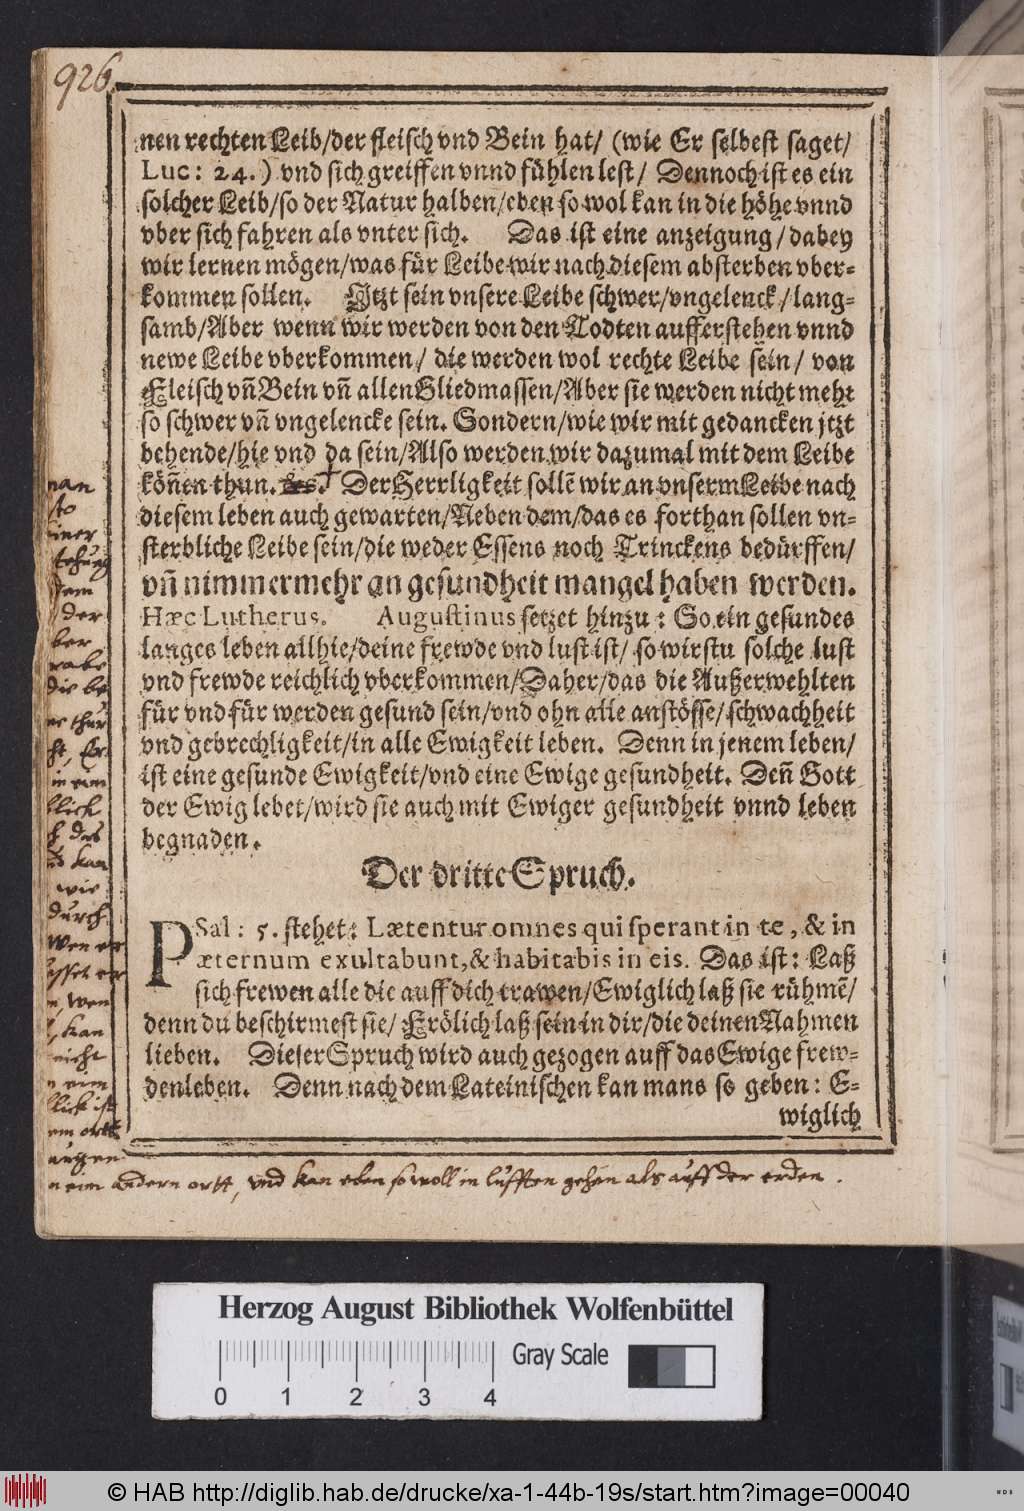 926.
nen rechten Leib/der fleisch vnd Bein hat/ (wie Er selbest saget/
Luc: 24.) vnd sich greiffen vnnd fühlen lest/ Dennoch ist es ein
solcher Leib/so der Natur halben/eben so wol kan in die höhe vnnd
vber sich fahren als vnter sich. Das ist eine anzeigung/dabey
wir lernen mögen/was für Leibe wir nach diesem absterben vber-
kommen sollen. Jtzt sein vnsere Leibe schwer/vngelenck/lang-
samb/Aber wenn wir werden von den Todten aufferstehen vnnd
newe Leibe vberkommen/ die werden wol rechte Leibe sein/ von
Fleisch vñ Bein vñ allen Gliedmassen/Aber sie werden nicht mehr
so schwer vñ vngelencke sein. Sondern/wie wir mit gedancken jtzt
behende/hie vnd da sein/Also werden wir dazumal mit dem Leibe
köñen thun. Der Herrligkeit sollẽ wir an vnserm Leibe nach
diesem leben auch gewarten/Neben dem/das es forthan sollen vn-
sterbliche Leibe sein/die weder Essens noch Trinckens bedürffen/
vñ nimmermehr an gesundheit mangel haben werden.
Hæc Lutherus. Augustinus setzet hinzu: So ein gesundes
langes leben allhie/deine frewde vnd lust ist/ so wirstu solche lust
vnd frewde reichlich vberkommen/Daher/das die Außerwehlten
für vnd für werden gesund sein/vnd ohn alle anstösse/schwachheit
vnd gebrechligkeit/in alle Ewigkeit leben. Denn in jenem leben/
ist eine gesunde Ewigkeit/vnd eine Ewige gesundheit. Deñ Gott
der Ewig lebet/wird sie auch mit Ewiger gesundheit vnnd leben
begnaden.
Der dritte Spruch.
PSal: 5. stehet: Lætentur omnes qui sperant in te, & in
æternum exultabunt, & habitabis in eis. Das ist: Laß
sich frewen alle die auff dich trawen/Ewiglich laß sie rühmẽ/
denn du beschirmest sie/ Frölich laß sein in dir/die deinen Nahmen
lieben. Dieser Spruch wird auch gezogen auff das Ewige frew-
denleben. Denn nach dem Lateinischen kan mans so geben: E-
wiglich
der
ber
die be
in ein
kan
wie
durch
wen er
wen
kan
nicht
ein
lick ist
em ortt
augen
ein andern ortt, vnd kan eben so woll in lufften gehen als auff der erden.
Herzog August Bibliothek Wolfenbüttel
0 1 2 3 4
Gray Scale
© HAB http://diglib.hab.de/drucke/xa-1-44b-19s/start.htm?image=00040